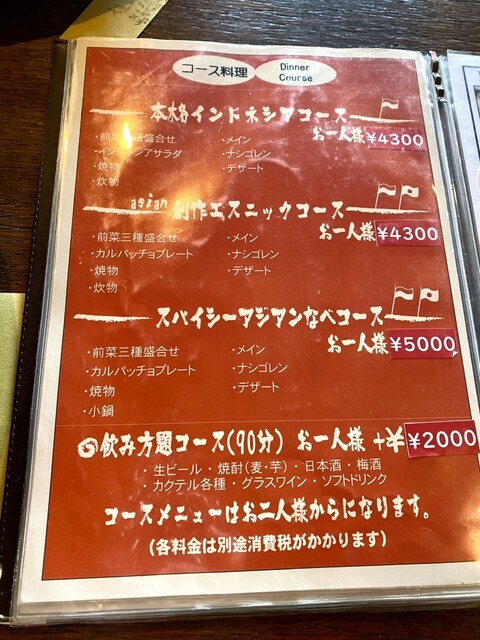 コース料理
Dinner
Course
本格インドネシアコース
お一人様 ¥4300
・前菜三種盛合せ ・メイン
・インドネシアサラダ ・ナシゴレン
・焼物 ・デザート
・炊物
asian 創作エスニックコース
お一人様 ¥4300
・前菜三種盛合せ ・メイン
・カルパッチョプレート ・ナシゴレン
・焼物 ・デザート
・炊物
スパイシーアジアンなべコース
お一人様 ¥5000
・前菜三種盛合せ ・メイン
・カルパッチョプレート ・ナシゴレン
・焼物 ・デザート
・小鍋
飲み方題コース(90分) お一人様 +¥2000
・生ビール・焼酎(麦・芋)・日本酒・梅酒
・カクテル各種・グラスワイン・ソフトドリンク
コースメニューはお二人様からになります。
(各料金は別途消費税がかかります)